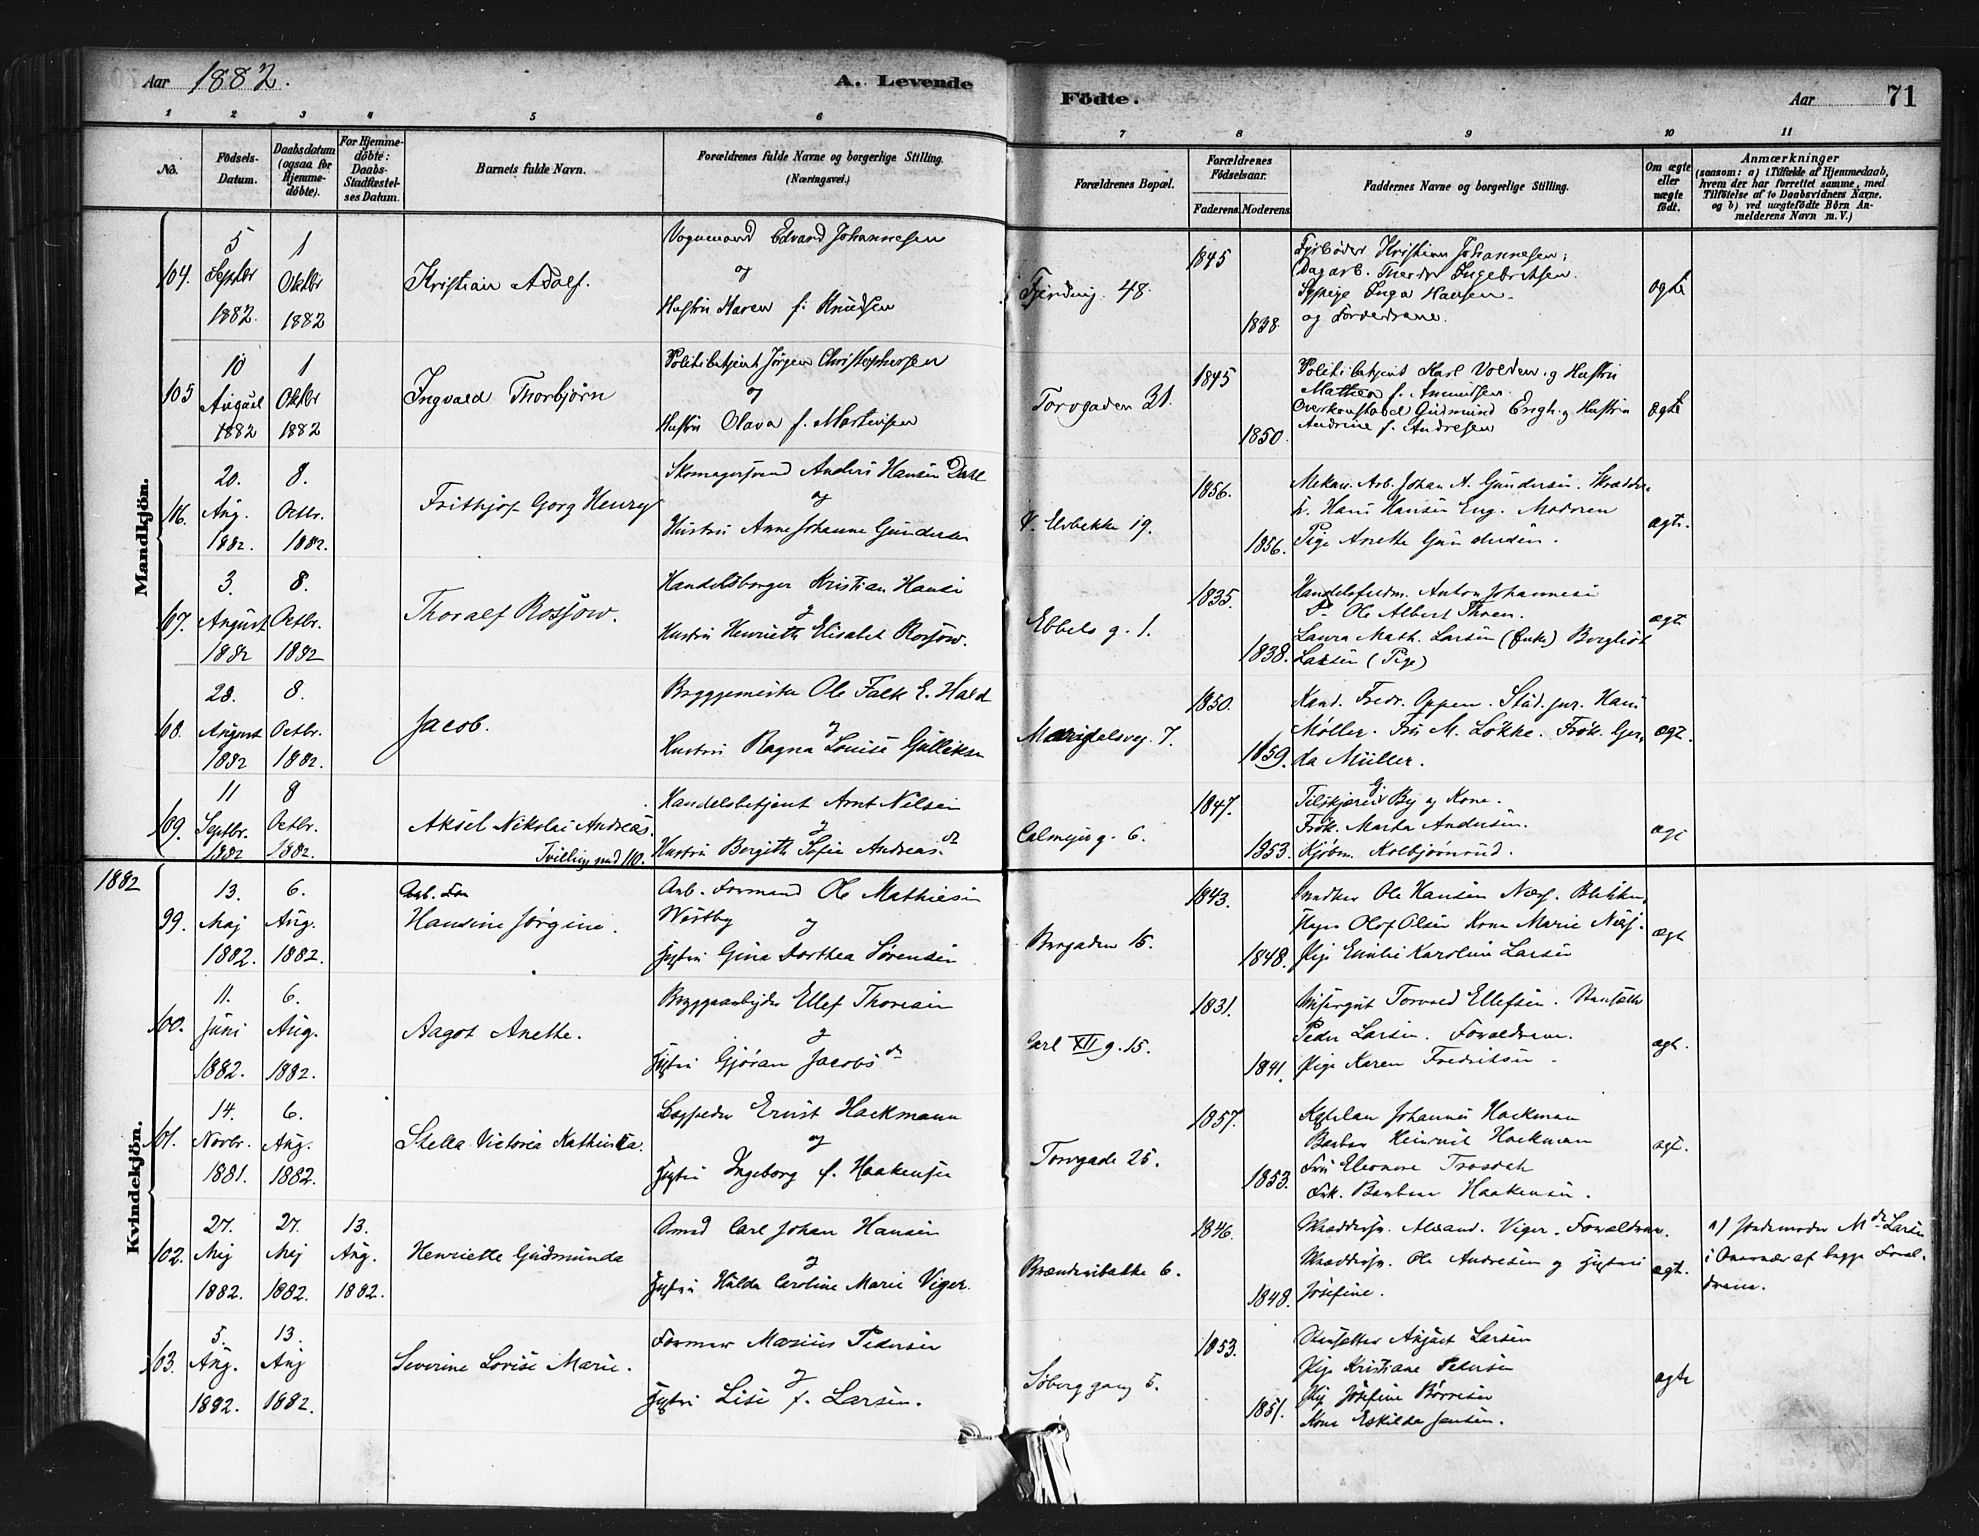 Aar 1882. A. Levende
Födte. Aar 71
1 2 3 4 5 6 7 8 9 10 11
No.
Födsels-
Datum.
Daabsdatum
(ogsaa for
Hjemme-
döbte).
For Hjemme-
döbte:
Daabs-
Stadfæstel-
ses Datum.
Barnets fulde Navn.
Forældrenes fulde Navne og borgerlige Stilling.
(Næringsvei.)
Forældrenes Bopæl.
Forældrenes
Födselsaar.
Faderens. Moderens.
Faddernes Navne og borgerlige Stilling.
Om ægte
eller
uægte
født.
Anmærkninger
(saasom: a) i Tilfælde af Hjemmedaab,
hvem der har forrettet samme, med
Tilföielse af to Daabsvidners Navne,
og b) ved uægtefödte Börn An-
melderens Navn m. V.)
Mandkjön.
104. 5 Septbr 1882. 1 Oktbr 1882
Kristian Adolf.
Vognmand Edvard Johannesen
og
Hustru Maren f. Knudsen
Fjerding. 48.
1845 1838
Fyrbøder Kristian Johannesen;
Dagarb. Theodor Ingebretsen.
Inga Hansen.
og Forældrene.
ægte
105 10 August 1882 1 Oktbr 1882
Ingvald Thorbjørn
Politibetjent Jørgen Christophersen
og
Hustru Olava f. Mortensen
Torvgaden 31.
1845 1850.
Politibetjent Karl Volden og Hustru
Mathea f. Amundsen.
Overkonstabel Gudmund Engh og Hustru
Andrine f. Andresen
ægte
106. 20. Aug. 1882. 8. Octbr. 1882.
Frithjof Georg Henry
Skomagersvend Anders Hansen Dahl
og
Hustru Anne Johanne Gundersen
Elvbakke 19.
1856. 1856.
Mekan. Arb. Johan A. Gundersen. Skrædder
Hans Hansen Eng. Moderen
Pige Anette Gundersen.
ægte.
107. 3. August 1882 8. Octbr. 1882
Thoralf Rossow.
Handelsborger Kristian Hansen
og
Hustru Henriette Elisabet Rossow.
Ebbels g. 1.
1835. 1838.
Anton Johannesen
Ole Albert Thoen.
Laura Math. Larsen (Enke) Borghild
Larsen (Pige)
ægte
108. 28. August 1882 8. Octbr. 1882.
Jacob.
Bryggemester Ole Falk E. Hald
og
Hustru Ragna Louise Gulliksen
Maridalsvej. 7.
1850. 1859.
Kand. Fredr. Oppen. Stud. jur. Hans
Møller. Fru M. Løkke. Frøk. Ger-
da Müller.
ægte.
109. 11 Septbr. 1882 8 Octbr. 1882.
Aksel Nikolai Andreas.
Tvilling med 110.
Handelsbetjent Arnt Nilsen
og
Hustru Bergith Sofie Andreasdr
Calmeyer g. 6.
1847. 1853.
By og Kone.
Frøk. Marta Andersen.
Kjøbm. Kolbjørnsrud.
ægte
1882
Kvindekjön.
99. 13. Maj 1882. 6. Aug. 1882.
Hansine Jørgine.
Arb. Formand Ole Mathiesen
Westby og
Hustru Gina Dorthea Sørensen
Borgaden 15.
1843. 1848.
Snedker Ole Hansen Næss. Blikken-
slager Olof Olsen Kone Marie Næss.
Pige Emilie Karoline Larsen
ægte
100. 11. Juni 1882. 6. Aug. 1882.
Aagot Anette.
Bryggearbejder Ellef Thoresen
og
Hustru Gjøran Jacobsdr
Carl XII g. 15.
1831. 1841.
Torvald Ellefsen.
Peder Larsen. Forældrene.
Pige Karen Fredriksen.
ægte.
101. 14. Novbr. 1881. 6. Aug. 1882.
Stella Victoria Kathinka.
Ernst Hackmann
og
Hustru Ingeborg f. Haakensen
Torvgade 25.
1857. 1853.
Johannes Hackman
Heinrich Hackman
Fru Eleonore Trosdah
Frk. Barbra Haakensen.
ægte.
102. 27. Mej 1882. 27. Mej 1882. 13. Aug. 1882.
Henriette Gudmunda
Smed Carl Johan Hansen
og
Hustru Hulda Caroline Marie Viger.
Brænderibakke 6.
1846. 1848.
Viger. Forældrene.
Ole Andresen og Hustru
Josefine.
ægte.
a) Jordemoder Mdr Larsen
i Overvær af begge Foræl-
drene.
103. 5. Aug. 1882. 13. Aug 1882.
Severine Lovise Marie.
Former Marius Pedersen
og
Hustru Lise f. Larsen.
Søberg gang 5.
1853. 1851.
August Larsen
Pige Kristiane Pedersen
Pige Josefine Børresen
Kone Eskilda Jansen.
ægte